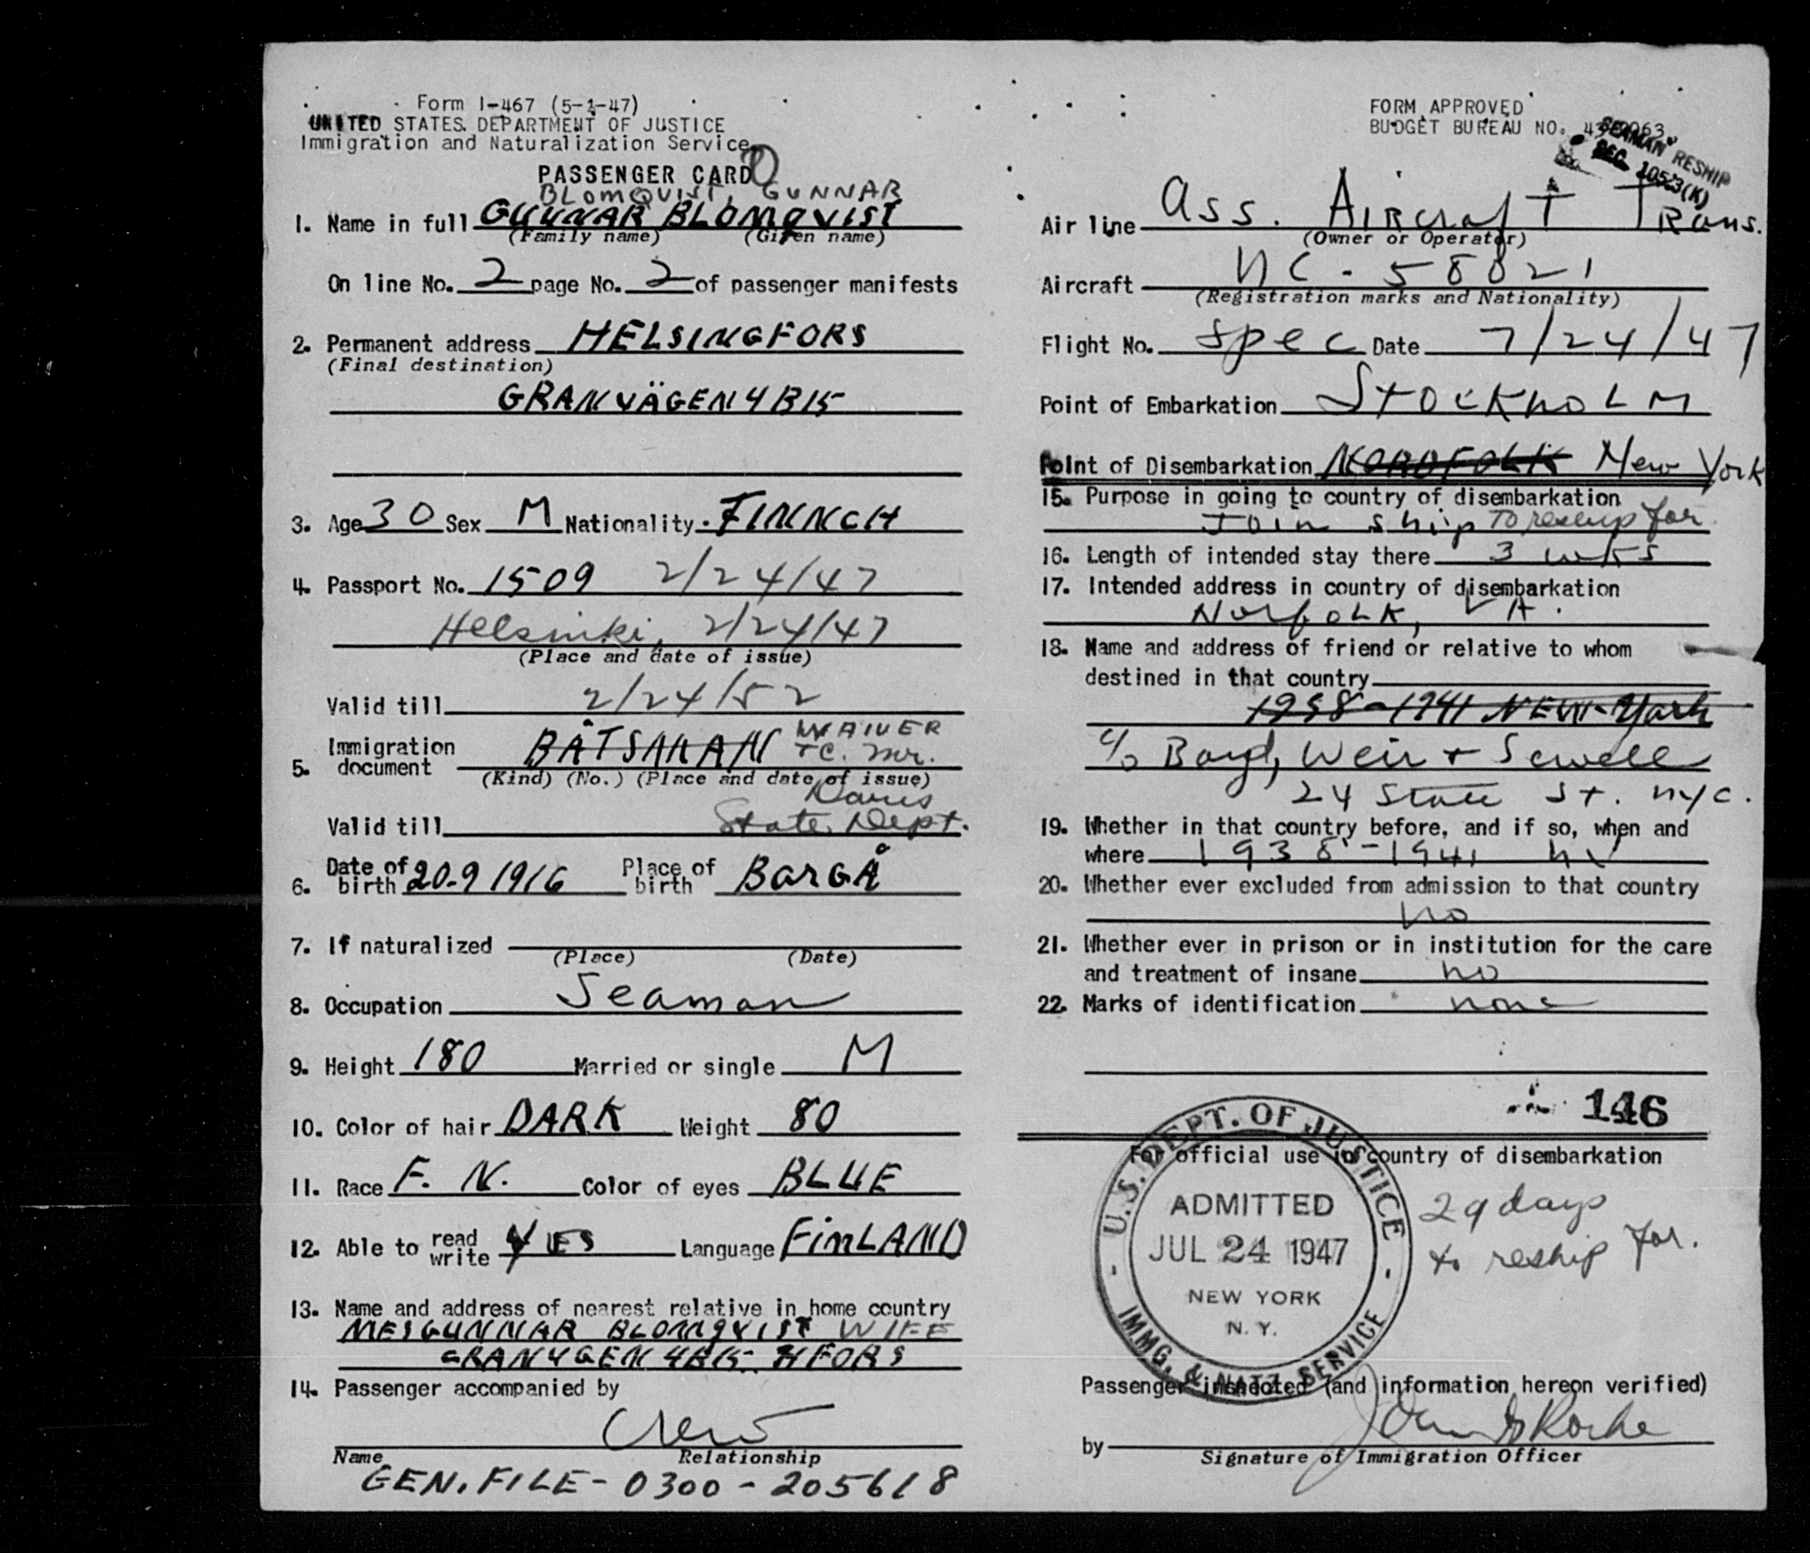 Form I-467 (5-1-47)
UNITED STATES DEPARTMENT OF JUSTICE
Immigration and Naturalization Service
PASSENGER CARD
BLOMQVIST, GUNNAR
1. Name in full GUNNAR BLOMQVIST
(Family name) (Given name)
On line No. 2 page No. 2 of passenger manifests
2. Permanent address HELSINGFORS
(Final destination)
GRANVÄGEN 4 B 15
3. Age 30 Sex M Nationality FINNCH
4. Passport No. 1509 2/24/47
Helsinki, 2/24/47
(Place and date of issue)
Valid till 2/24/52
5. Immigration document BÅTSMAN WAIVER
T.C. Mr.
(Kind) (No.) (Place and date of issue)
Davis
Valid till State Dept.
6. Date of birth 20-9 1916 Place of birth BORGÅ
7. If naturalized
(Place) (Date)
8. Occupation Seaman
9. Height 180 Married or single M
10. Color of hair DARK Weight 80
11. Race F. N. Color of eyes BLUE
12. Able to read write YES Language FinLAND
13. Name and address of nearest relative in home country
GUNNAR BLOMQVIST WIFE
GRANVGEN 4B15 HFORS
14. Passenger accompanied by
Crew
Name Relationship
GEN. FILE - 0300 - 205618
FORM APPROVED
BUDGET BUREAU NO.
SEAMAN RESHIP
SEC. 10523(K)
Air line Ass. Aircraft Trans.
(Owner or Operator)
Aircraft NC-58021
(Registration marks and Nationality)
Flight No. Spec Date 7/24/47
Point of Embarkation STOCKHOLM
Point of Disembarkation NORDFOLK New York
15. Purpose in going to country of disembarkation
Join ship To reship for.
16. Length of intended stay there 3 wks
17. Intended address in country of disembarkation
Norfolk, VA.
18. Name and address of friend or relative to whom
destined in that country
1938-1941 NEW-York
c/o Boyd, Weir & Sewell
24 State St. NYC.
19. Whether in that country before, and if so, when and
where 1938-1941 NY
20. Whether ever excluded from admission to that country
no
21. Whether ever in prison or in institution for the care
and treatment of insane no
22. Marks of identification none
146
For official use in country of disembarkation
U.S. DEPT. OF JUSTICE
ADMITTED
JUL 24 1947
NEW YORK
N. Y.
IMMG. & NATZ. SERVICE
29 days
to reship for.
Passenger inspected (and information hereon verified)
by
Signature of Immigration Officer